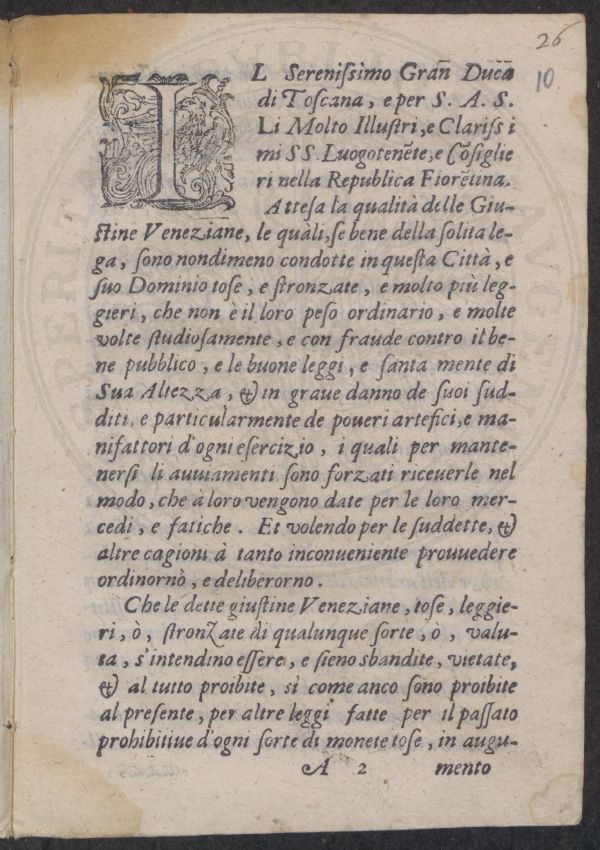 26
10
IL Sereniſsimo Gran̄ Duca
di Toſcana, e per S. A. S.
Li Molto Illuſtri, e Clariſs i
mi SS. Luogotenēte, e Cōſiglie
ri nella Republica Fiorētina.
Atteſa la qualità delle Giu-
ſtine Veneziane, le quali, ſe bene della ſolita le-
ga, ſono nondimeno condotte in queſta Città, e
ſuo Dominio toſe, e ſtronzate, e molto più leg-
gieri, che non è il loro peſo ordinario, e molte
volte ſtudioſamente, e con fraude contro il be-
ne pubblico, e le buone leggi, e ſanta mente di
Sua Altezza, & in graue danno de ſuoi ſud-
diti, e particularmente de poueri artefici, e ma-
nifattori d'ogni eſercizio, i quali per mante-
nerſi li auuiamenti ſono forzati riceuerle nel
modo, che à loro vengono date per le loro mer-
cedi, e fatiche. Et volendo per le ſuddette, &
altre cagioni à tanto inconueniente prouuedere
ordinornò, e deliberorno.
Che le dette giuſtine Veneziane, toſe, leggie-
ri, ò, ſtronzate di qualunque ſorte, ò, valu-
ta, s'intendino eſſere, e ſieno sbandite, vietate,
& al tutto proibite, sì come anco ſono proibite
al preſente, per altre leggi fatte per il paſſato
prohibitiue d'ogni ſorte di monete toſe, in augu-
A 2 mento